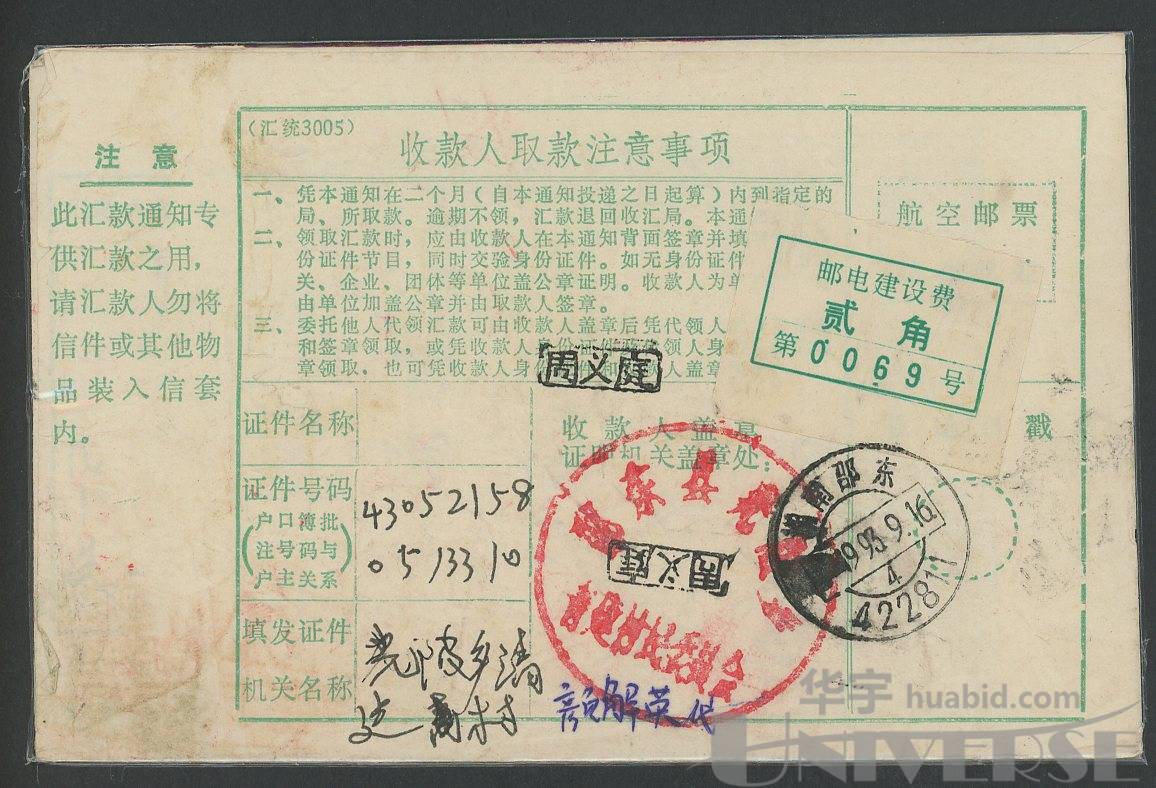 注 意
此汇款通知专
供汇款之用，
请汇款人勿将
信件或其他物
品装入信套
内。
（汇统3005）
收款人取款注意事项
一、凭本通知在二个月（自本通知投递之日起算）内到指定的
局、所取款。逾期不领，汇款退回收汇局。本通
二、领取汇款时，应由收款人在本通知背面签章并填
份证件节目，同时交验身份证件。如无身份证件
关、企业、团体等单位盖公章证明。收款人为单
由单位加盖公章并由取款人签章。
三、委托他人代领汇款可由收款人盖章后凭代领人
和签章领取，或凭收款人身份证件及代领人身
章领取。也可凭收款人身份证件和收款人盖章
航空邮票
邮电建设费
贰角
第0069号
周义庭
证件名称
收款人盖章
证明机关盖章处：
戳
证件号码
（户口簿批
注号码与
户主关系）
43052158
0513310
周义庭
东县
村民委员会
湖南邵东
1993.9.16
4
422811
填发证件
机关名称
乡清
村
颜解英代
华宇huabid.com
UNIVERSE